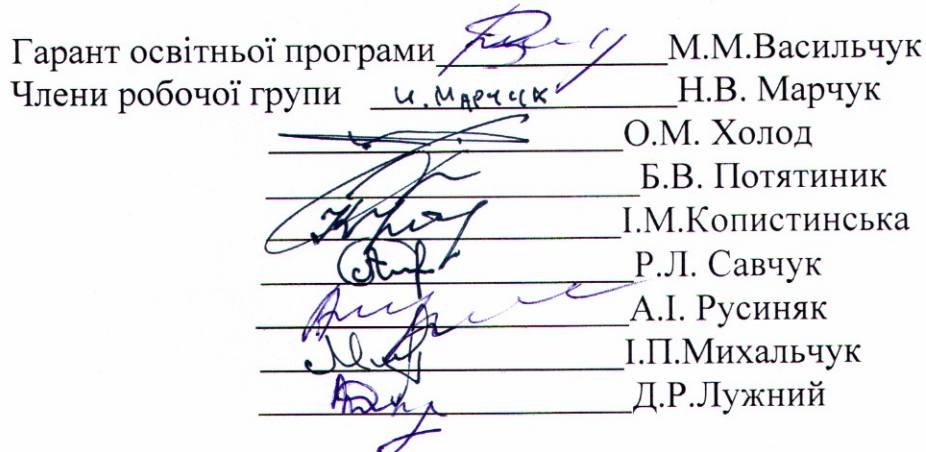 Гарант освітньої програми М.М.Васильчук
Члени робочої групи Н. Марчук Н.В. Марчук
О.М. Холод
Б.В. Потятиник
І.М.Копистинська
Р.Л. Савчук
А.І. Русиняк
І.П.Михальчук
Д.Р.Лужний